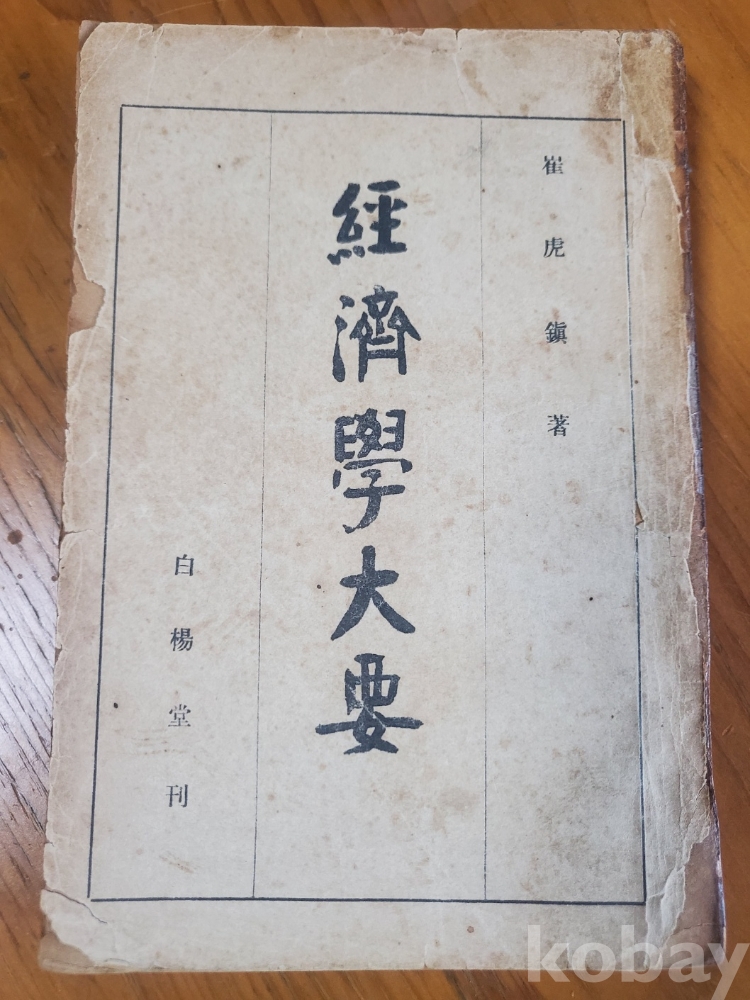 崔虎鎭著
經濟學大要
白楊堂刊
kobay